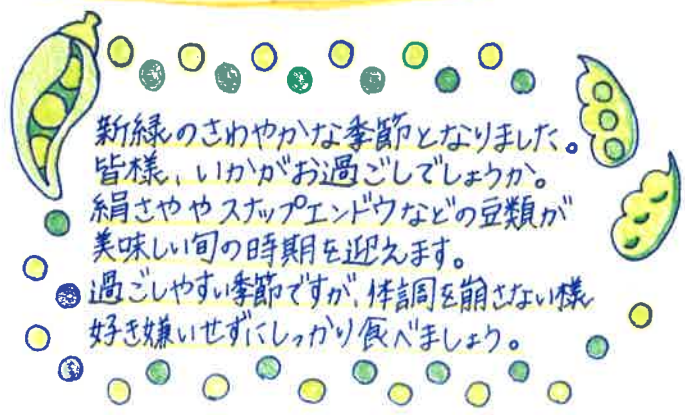 新緑のさわやかな季節となりました。
皆様、いかがお過ごしでしょうか。
絹さややスナップエンドウなどの豆類が
美味しい旬の時期を迎えます。
過ごしやすい季節ですが、体調を崩さない様
好き嫌いせずにしっかり食べましょう。